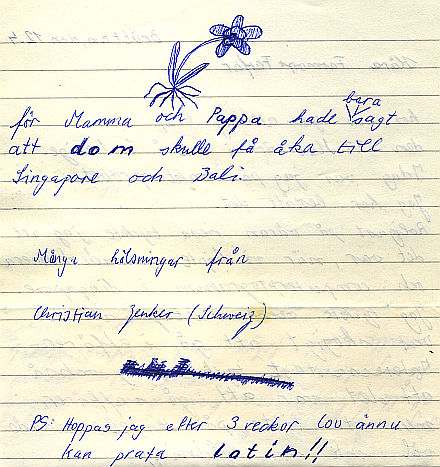 för Mamma och Pappa hade bara sagt
att dom skulle få åka till
Singapore och Bali.
Många hälsningar från
Christian Zenker (Schweiz)
PS: Hoppas jag efter 3 veckor lov ännu
kan prata latin!!